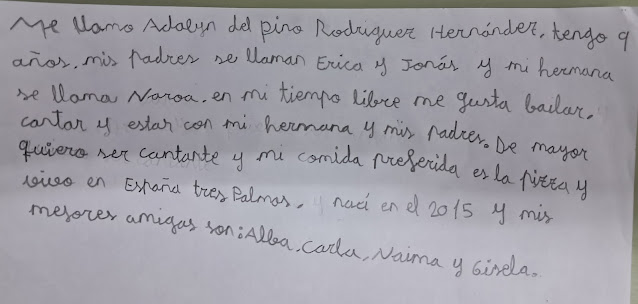 Me llamo Adalyn del pino Rodriguez Hernández, tengo 9
años, mis padres se llaman Erica y Jonás y mi hermana
se llama Naroa. en mi tiempo libre me gusta bailar,
cantar y estar con mi hermana y mis padres. De mayor
quiero ser cantante y mi comida preferida es la pizza y
vivo en España tres Palmas, y nací en el 2015 y mis
mejores amigas son: Alba, Carla, Naima y Gisela.